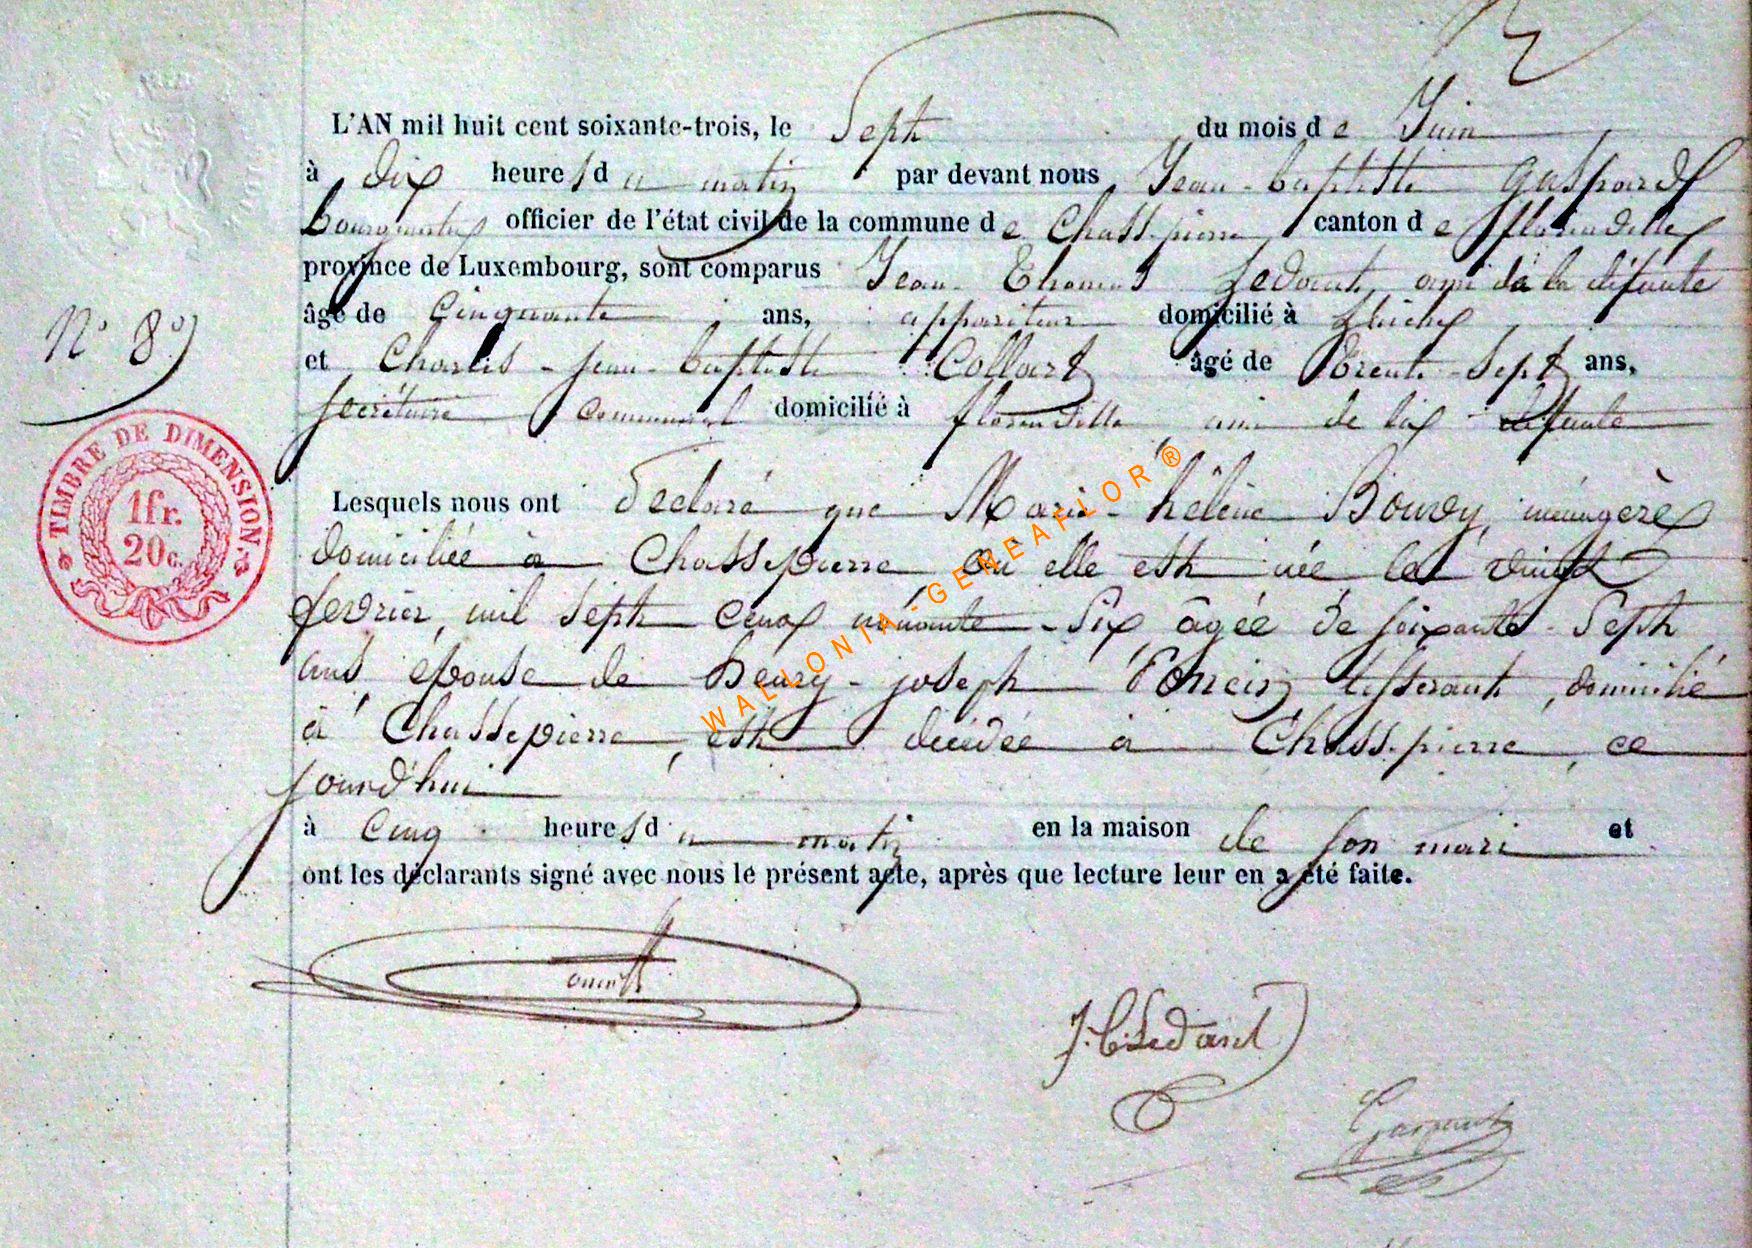 L'AN mil huit cent soixante-trois, le Sept du mois de Juin
à dix heures du matin par devant nous Jean-baptiste Gaspard
officier de l'état civil de la commune de Chassepierre canton de florenville
province de Luxembourg, sont comparus Jean Thomas Ledant, ami de la défunte
âgé de Cinquante ans, appariteur domicilié à
N° 8
et Charles-jean-baptiste Collart âgé de trente-sept ans,
secrétaire communal domicilié à florenville ami de la défunte
TIMBRE DE DIMENSION
1fr.
20c.
Lesquels nous ont déclaré que Marie-hélène Bouvy, ménagère
domiciliée à Chassepierre où elle est née le vingt
fevrier, mil sept cent nonante-six, âgée de soixante-sept
ans, épouse de henry-joseph Poncin tisserant, domicilié
à Chassepierre, est décédée à Chassepierre, ce
jourd'hui
à cinq heures du matin en la maison de son mari et
ont les déclarants signé avec nous le présent acte, après que lecture leur en a été faite.
WALLONIA-GENEAFLOR®